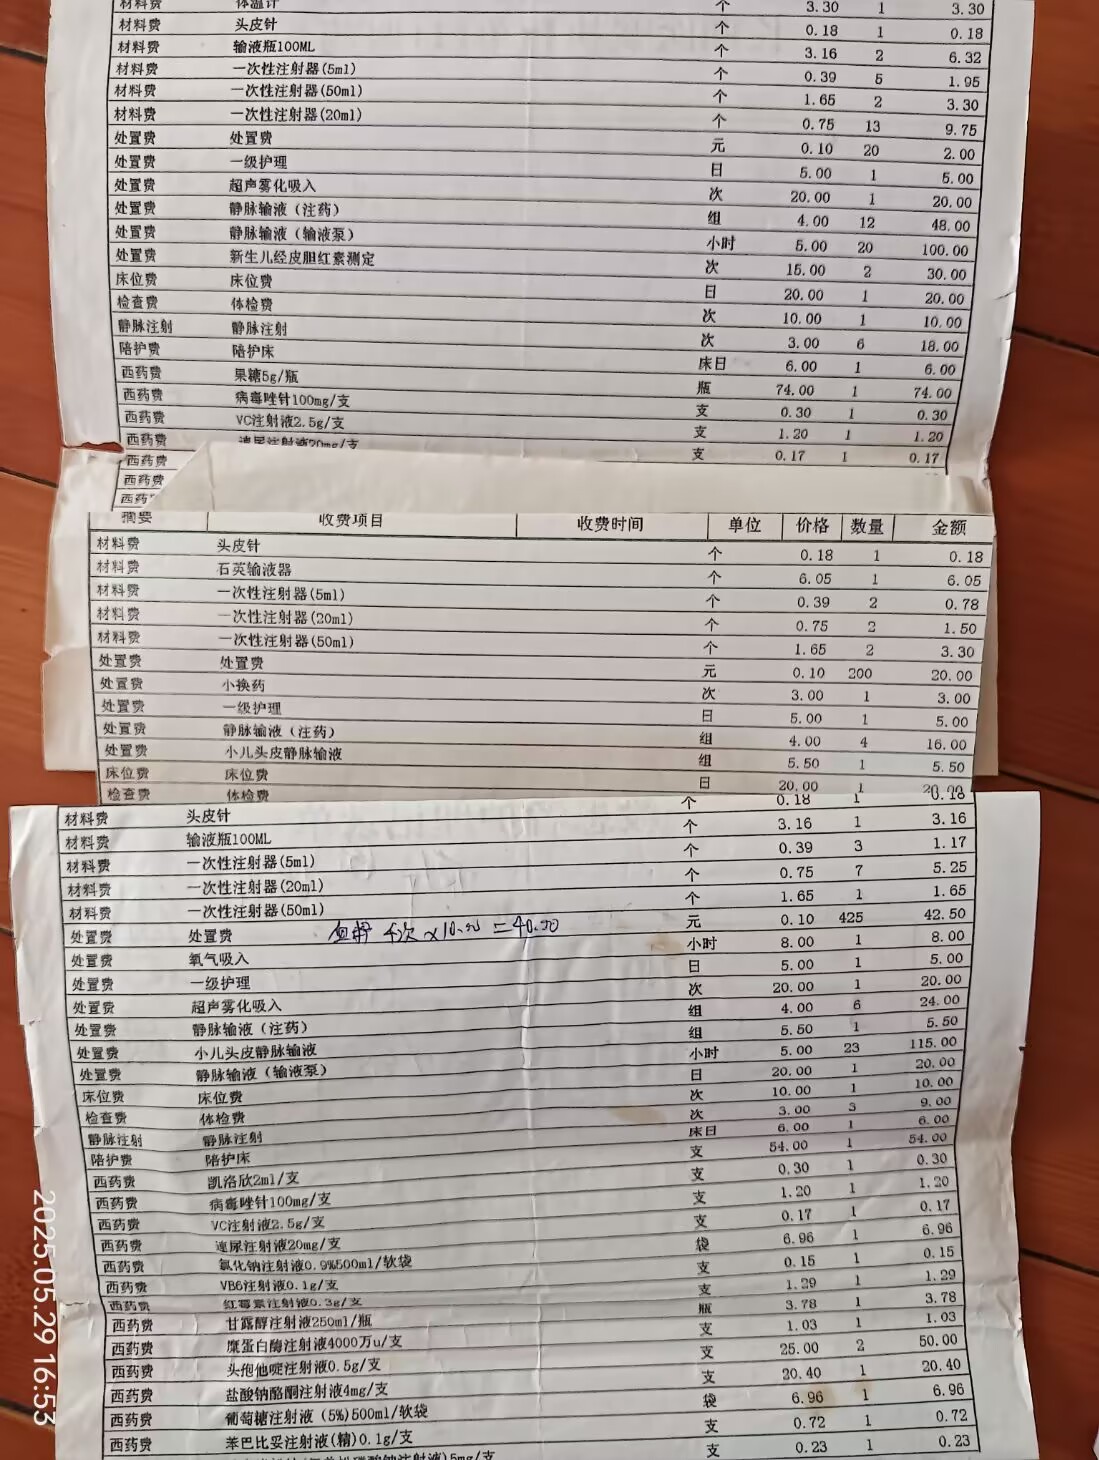 材料费 体温计 个 3.30 1 3.30
材料费 头皮针 个 0.18 1 0.18
材料费 输液瓶100ML 个 3.16 2 6.32
材料费 一次性注射器(5ml) 个 0.39 5 1.95
材料费 一次性注射器(50ml) 个 1.65 2 3.30
材料费 一次性注射器(20ml) 个 0.75 13 9.75
处置费 处置费 元 0.10 20 2.00
处置费 一级护理 日 5.00 1 5.00
处置费 超声雾化吸入 次 20.00 1 20.00
处置费 静脉输液（注药） 组 4.00 12 48.00
处置费 静脉输液（输液泵） 小时 5.00 20 100.00
处置费 新生儿经皮胆红素测定 次 15.00 2 30.00
床位费 床位费 日 20.00 1 20.00
检查费 体检费 次 10.00 1 10.00
静脉注射 静脉注射 次 3.00 6 18.00
陪护费 陪护床 床日 6.00 1 6.00
西药费 果糖5g/瓶 瓶 74.00 1 74.00
西药费 病毒唑针100mg/支 支 0.30 1 0.30
西药费 VC注射液2.5g/支 支 1.20 1 1.20
西药费 速尿注射液20mg/支 支 0.17 1 0.17
西药费
西药费
西药费
摘要 收费项目 收费时间 单位 价格 数量 金额
材料费 头皮针 个 0.18 1 0.18
材料费 石英输液器 个 6.05 1 6.05
材料费 一次性注射器(5ml) 个 0.39 2 0.78
材料费 一次性注射器(20ml) 个 0.75 2 1.50
材料费 一次性注射器(50ml) 个 1.65 2 3.30
处置费 处置费 元 0.10 200 20.00
处置费 小换药 次 3.00 1 3.00
处置费 一级护理 日 5.00 1 5.00
处置费 静脉输液（注药） 组 4.00 4 16.00
处置费 小儿头皮静脉输液 组 5.50 1 5.50
床位费 床位费 日 20.00 1 20.00
检查费 体检费
材料费 头皮针 个 0.18 1 0.18
材料费 输液瓶100ML 个 3.16 1 3.16
材料费 一次性注射器(5ml) 个 0.39 3 1.17
材料费 一次性注射器(20ml) 个 0.75 7 5.25
材料费 一次性注射器(50ml) 个 1.65 1 1.65
处置费 处置费 元 0.10 425 42.50
=40.00
处置费 氧气吸入 小时 8.00 1 8.00
处置费 一级护理 日 5.00 1 5.00
处置费 超声雾化吸入 次 20.00 1 20.00
处置费 静脉输液（注药） 组 4.00 6 24.00
处置费 小儿头皮静脉输液 组 5.50 1 5.50
处置费 静脉输液（输液泵） 小时 5.00 23 115.00
床位费 床位费 日 20.00 1 20.00
检查费 体检费 次 10.00 1 10.00
静脉注射 静脉注射 次 3.00 3 9.00
陪护费 陪护床 床日 6.00 1 6.00
西药费 凯洛欣2ml/支 支 54.00 1 54.00
西药费 病毒唑针100mg/支 支 0.30 1 0.30
西药费 VC注射液2.5g/支 支 1.20 1 1.20
西药费 速尿注射液20mg/支 支 0.17 1 0.17
西药费 氯化钠注射液0.9%500ml/软袋 袋 6.96 1 6.96
西药费 VB6注射液0.1g/支 支 0.15 1 0.15
西药费 红霉素注射液0.3g/支 支 1.29 1 1.29
西药费 甘露醇注射液250ml/瓶 瓶 3.78 1 3.78
西药费 糜蛋白酶注射液4000万u/支 支 1.03 1 1.03
西药费 头孢他啶注射液0.5g/支 支 25.00 2 50.00
西药费 盐酸钠酪酮注射液4mg/支 支 20.40 1 20.40
西药费 葡萄糖注射液（5%)500ml/软袋 袋 6.96 1 6.96
西药费 苯巴比妥注射液(精)0.1g/支 支 0.72 1 0.72
支 0.23 1 0.23
2025.05.29 16:53